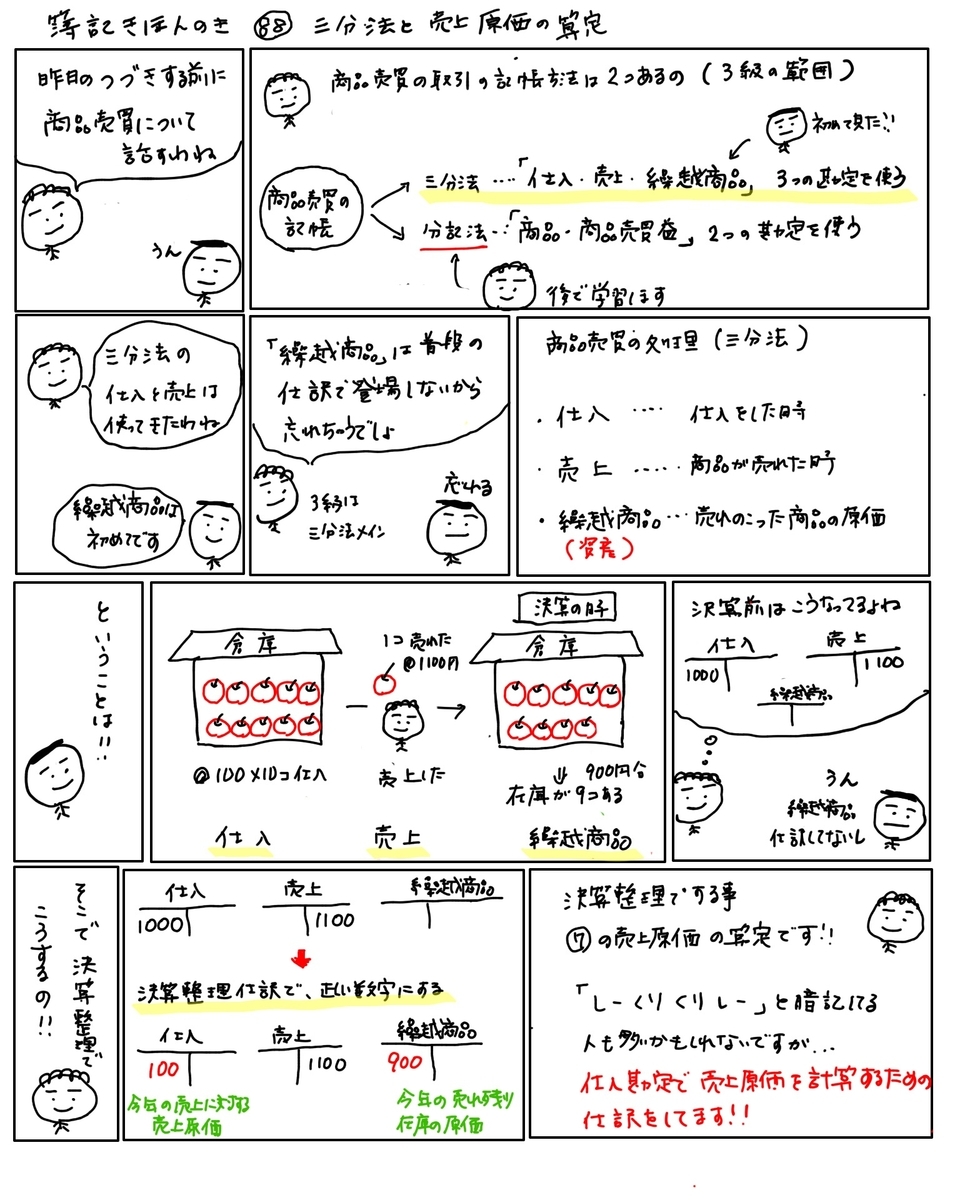 簿記きほんのき 88 三分法と売上原価の算定
昨日のつづきする前に
商品売買について
話すわね
うん
商品売買の取引の記帳方法は2つあるの(3級の範囲)
初めて見た!!
商品売買の
記帳
三分法‥‥「仕入・売上・繰越商品」3つの勘定を使う
分記法‥「商品・商品売買益」2つの勘定を使う
後で学習します
三分法の
仕入と売上は
使ってきたわね
繰越商品は
初めてです
「繰越商品」は普段の
仕訳で登場しないから
忘れちゃうでしょ
3級は
三分法メイン
忘れる
商品売買の処理(三分法)
・仕入‥‥仕入をした時
・売上‥‥‥商品が売れた時
・繰越商品‥‥売れのこった商品の原価
(資産)
ということは!!
倉庫
@100×10コ仕入
仕入
1コ売れた
@1100円
売上した
売上
決算の日
倉庫
⇓ 900円分
在庫が9コある
繰越商品
決算前はこうなってるよね
仕入 売上
1000 1100
繰越商品
うん
繰越商品
仕訳してないし
そこで決算整理で
こうするの!!
仕入 売上 繰越商品
1000 1100
決算整理仕訳で、正しい数字にする
仕入 売上 繰越商品
100 1100 900
今年の売上に対する
売上原価
今年の売れ残り
在庫の原価
決算整理でする事
⑦の売上原価の算定です!!
「しーくりくりしー」と暗記してる
人も多いかもしれないですが…
仕入勘定で売上原価を計算するための
仕訳をしてます!!